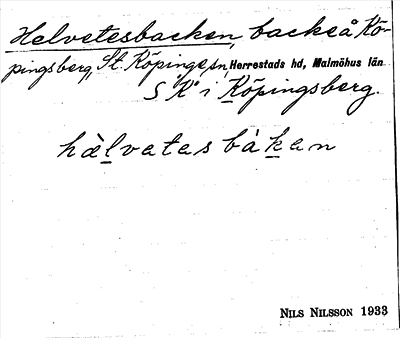 Helvetesbacken, backe å Kö-
pingsberg, St. Köpinge sn, Herrestads hd, Malmöhus län
S K i Köpingsberg.
hàlvatas bákan
NILS NILSSON 1933